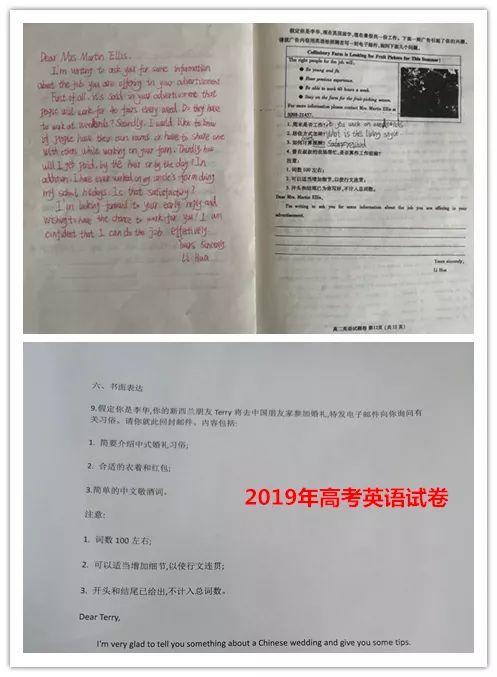 Dear Mrs Martin Ellis.
I'm writing to ask you for some information
about the job you are offering in your advertisement
First of all. it's said in your advertisement that
people will work for 40 hours every week. Do they have
to work at weekends? Secondly. I would like to know
if people have their own rooms or have to share one
with others while working on your farm. Thirdly how
will I get paid, by the hour or by the day? In
addition. I have ever worked on my uncle's farm during
my school holidays. Is that satisfactory?
I'm looking forward to your early reply and
wishing to have the chance to work for you! I am
confident that I can do the job effectively.
Yours Sincerely
Li Hua
假定你是李华,现在英国留学,现在暑假找一份工作。下面一则广告引起了你的兴趣,
请就广告内容用英语给招聘者写一封电子邮件,询问下面几个问题。
Farm is Looking for Fruit Pickers for This Summer!
The right people for the job will:
Be young and fit.
Have previous experience.
Be able to work 40 hours a week.
Stay on the farm for the fruit-picking season.
For more information please contact Mrs. Martin Ellis at
1. 周末是否工作? Do you work on weekends
2. 居住方式怎样? What is the living style
3. 如何计算报酬?
4. 曾在叔叔的农场帮忙,是否算作工作经验?
注意:
1. 词数 100 左右;
2. 可以适当增加细节,以使行文连贯;
3. 开头和结尾已为你写好,不计入总词数。
Dear Mrs. Martin Ellis,
I'm writing to ask you for some information about the job you are offering in your
advertisement.
Yours sincerely,
Li Hua
高二英语试题卷 第12页 (共12页)
六、书面表达
9.假定你是李华,你的新西兰朋友 Terry 将去中国朋友家参加婚礼,特发电子邮件向你询问有
关习俗。请你就此回封邮件。内容包括:
1. 简要介绍中式婚礼习俗;
2. 合适的衣着和红包;
3.简单的中文敬酒词。
2019年高考英语试卷
注意:
1. 词数 100 左右;
2. 可以适当增加细节,以使行文连贯;
3. 开头和结尾已给出,不计入总词数。
Dear Terry,
I'm very glad to tell you something about a Chinese wedding and give you some tips.